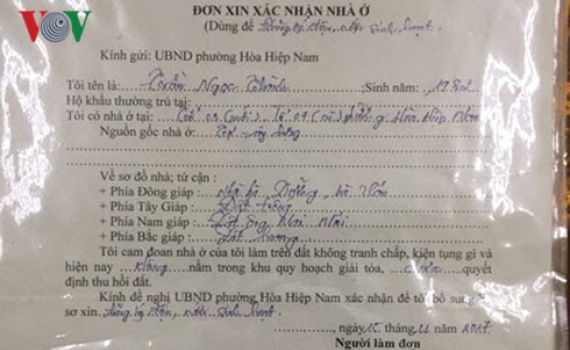 VOV
ĐƠN XIN XÁC NHẬN NHÀ Ở
(Dùng để đăng ký điện, nước sinh hoạt)
Kính gửi: UBND phường Hòa Hiệp Nam
Tôi tên là: Trần Ngọc ;Sinh năm: 1982
Hộ khẩu thường trú tại:
Tôi có nhà ở tại: Tổ Tổ 04 (cũ) phường Hòa Hiệp Nam
Nguồn gốc nhà ở: xây dựng
Về sơ đồ nhà; tứ cận :
+ Phía Đông giáp : nhà bà bà
+ Phía Tây Giáp : Đất
+ Phía Nam giáp : Đất ông
+ Phía Bắc giáp : Đất
Tôi cam đoan nhà ở của tôi làm trên đất không tranh chấp, kiện tụng gì và
hiện nay không nằm trong khu quy hoạch giải tỏa, quyết
định thu hồi đất.
Kính đề nghị UBND phường Hòa Hiệp Nam xác nhận để tôi bổ sung
sơ xin đăng ký điện, nước sinh hoạt.
, ngày tháng 2017
Người làm đơn